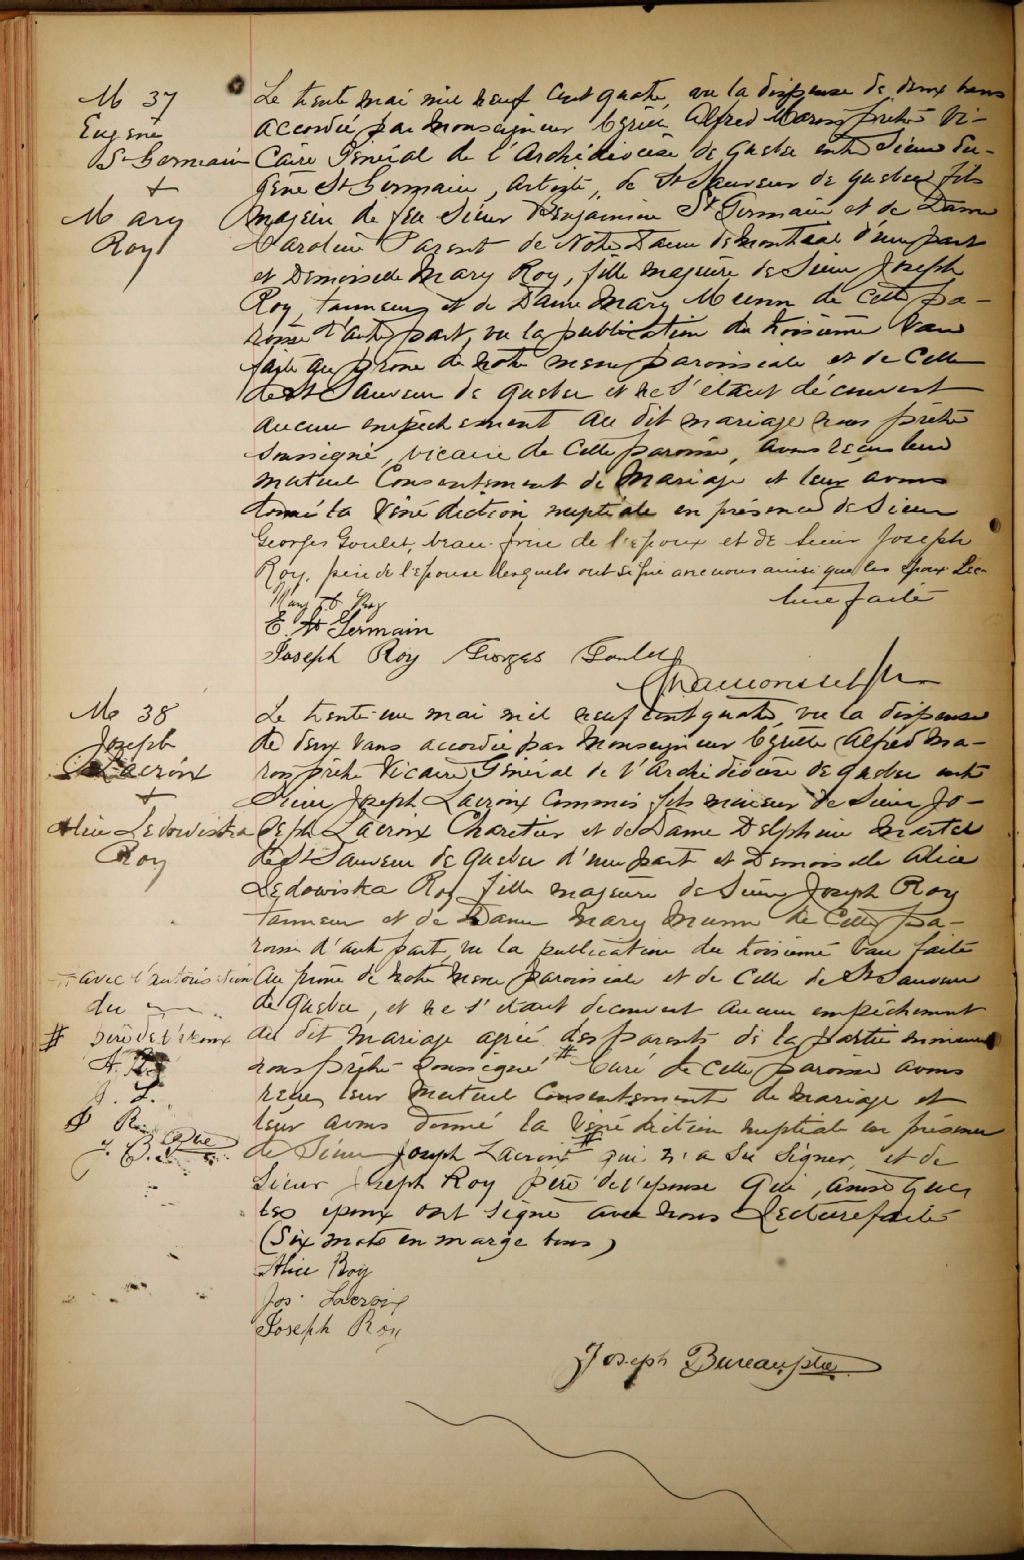 M 37
Eugène
St Germain
+
Mary
Roy
Le trente mai mil neuf cent quatre, vu la dispense de deux bans
accordée par Monseigneur Cyrille Alfred Marois prêtre Vi-
caire Général de l'Archidiocèse de Québec entre Sieur Eu-
gène St Germain, artiste, de St Sauveur de Québec fils
majeur de feu Sieur Benjamin St Germain et de Dame
Caroline Parent de Notre Dame de Montréal d'une part
et Demoiselle Mary Roy, fille majeure de Sieur Joseph
Roy, tanneur et de Dame Mary Munn de cette pa-
roisse d'autre part, vu la publication du troisième ban
faite au prône de notre messe paroissiale et de celle
de St Sauveur de Québec et ne s'étant découvert
aucun empêchement au dit mariage nous prêtre
soussigné, vicaire de cette paroisse, avons reçu leur
mutuel consentement de mariage et leur avons
donné la bénédiction nuptiale en présence de Sieur
Georges Goulet, beau-frère de l'époux et de Sieur Joseph
Roy, père de l'épouse lesquels ont signé avec nous ainsi que les époux Lec-
ture faite
Mary Roy
E. St Germain
Joseph Roy Georges Goulet
M 38
Joseph
Lacroix
+
Alice Ledowiska
Roy
Le trente-un mai mil neuf cent quatre, vu la dispense
de deux bans accordée par Monseigneur Cyrille Alfred Ma-
rois prêtre Vicaire Général de l'Archidiocèse de Québec entre
Sieur Joseph Lacroix commis fils mineur de Sieur Jo-
seph Lacroix Charetier et de Dame Delphine Martel
de St Sauveur de Québec d'une part et Demoiselle Alice
Ledowiska Roy fille majeure de Sieur Joseph Roy
tanneur et de Dame Mary Munn de cette pa-
roisse d'autre part, vu la publication du troisième ban faite
au prône de notre messe paroissiale et de celle de St Sauveur
de Québec, et ne s'étant découvert aucun empêchement
au dit mariage agréé des parents de la partie mineure
nous prêtre soussigné, # Curé de cette paroisse avons
reçu leur mutuel consentement de mariage et
leur avons donné la bénédiction nuptiale en présence
de Sieur Joseph Lacroix # qui n'a su signer, et de
Sieur Joseph Roy père de l'épouse qui, ainsi que
les époux ont signé avec nous Lecture faite
(Six mots en marge bons)
avec l'autorisation
du
# père de l'époux
A. R.
J. L.
J. R.
J. B. Ptre
Alice Roy
Jos. Lacroix
Joseph Roy
Joseph Bureau ptre